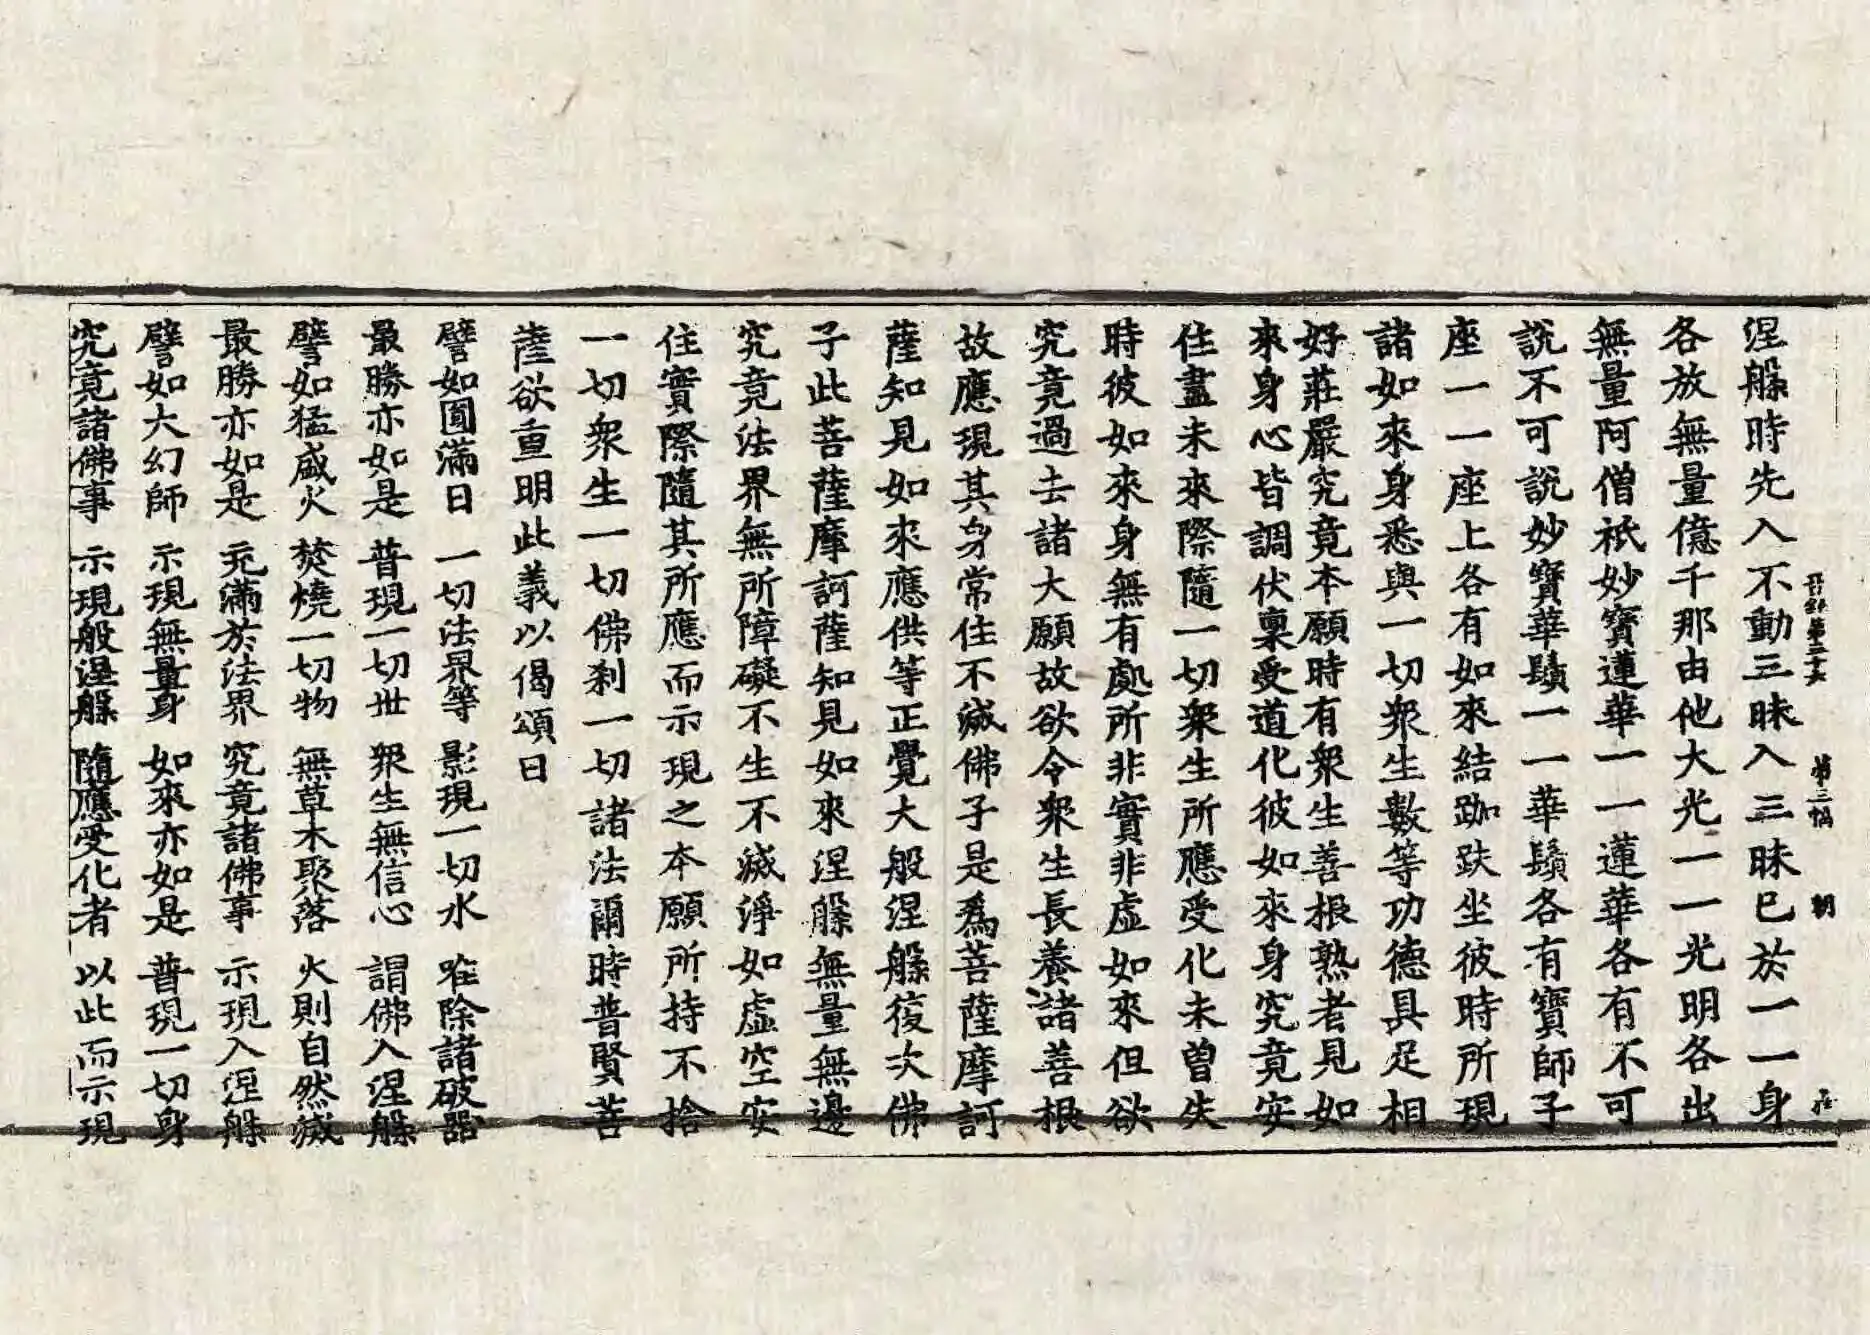 涅槃時先入不動三昧入三昧已於一一身
各放無量億千那由他大光一一光明各出
無量阿僧祇妙寶蓮華一一蓮華各有不可
說不可說妙寶華鬚一一華鬚各有寶師子
座一一座上各有如來結跏趺坐彼時所現
諸如來身悉與一切衆生數等功德具足相
好莊嚴究竟本願時有衆生善根熟老見如
來身心皆調伏稟受道化彼如來身究竟安
住盡未來際隨一切衆生所應受化未曾失
時彼如來身無有處所非實非虛如來但欲
究竟過去諸大願故欲令衆生長養諸善根
故應現其身常住不滅佛子是爲菩薩摩訶
薩知見如來應供等正覺大般涅槃復次佛
子此菩薩摩訶薩知見如來涅槃無量無邊
究竟法界無所障礙不生不滅淨如虛空安
住實際隨其所應而示現之本願所持不捨
一切衆生一切佛刹一切諸法爾時普賢菩
薩欲重明此義以偈頌曰
譬如圓滿日 一切法界等 影現一切水 唯除諸破器
最勝亦如是 普現一切世 衆生無信心 謂佛入涅槃
譬如猛盛火 焚燒一切物 無草木聚落 火則自然滅
最勝亦如是 充滿於法界 究竟諸佛事 示現入涅槃
譬如大幻師 示現無量身 如來亦如是 普現一切身
究竟諸佛事 示現般涅槃 隨應受化者 以此而示現